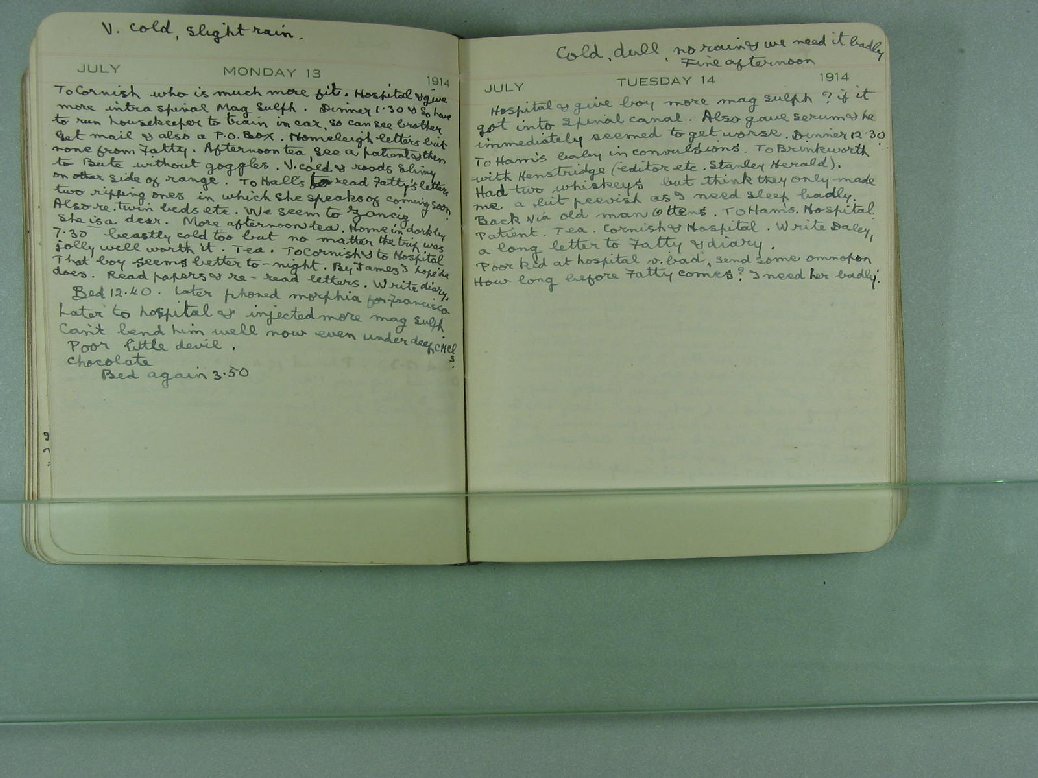 V. cold, slight rain.
JULY MONDAY 13 1914
To Cornish who is much more fit. Hospital & give
more intra spinal Mag Sulph. Dinner 1.30 & so have
to run housekeeper to train in car, so can see brother
Get mail & also a P.O. Box. Homeleigh letters but
none from Fatty. Afternoon tea, see a patient & then
to Bute without goggles. V. cold & roads slimy
on other side of range. To Hall's to read Fatty's letters
two ripping ones in which she speaks of coming soon
Also re. twin beds etc. We seem to
She is a dear. More afternoon tea. Home in dark by
7.30 beastly cold too but no matter the trip was
jolly well worth it. Tea. To Cornish & to Hospital
That boy seems better to-night. By James I hope he
does. Read papers & re-read letters. Write diary.
Bed 12.40. Later phoned morphia for
Later to hospital & injected more mag sulph
Can't bend him well now even under deep CHCl
3.
Poor little devil.
Chocolate
Bed again 3.50
Cold, dull, no rain & we need it badly
Fine afternoon
JULY TUESDAY 14 1914
Hospital & give boy more mag sulph ? if it
got into spinal canal. Also gave serum & he
immediately seemed to get worse. Dinner 12.30
To Harris baby in convulsions. To Brinkworth
with Henstridge (editor etc. Stanley Herald).
Had two whiskeys but think they only made
me. a bit peevish as I need sleep badly.
Back via old man Ottens. To Harris. Hospital.
Patient. Tea. Cornish & Hospital. Write Daley,
a long letter to Fatty & diary.
Poor kid at hospital v. bad, send some omnopon
How long before Fatty comes? I need her badly.